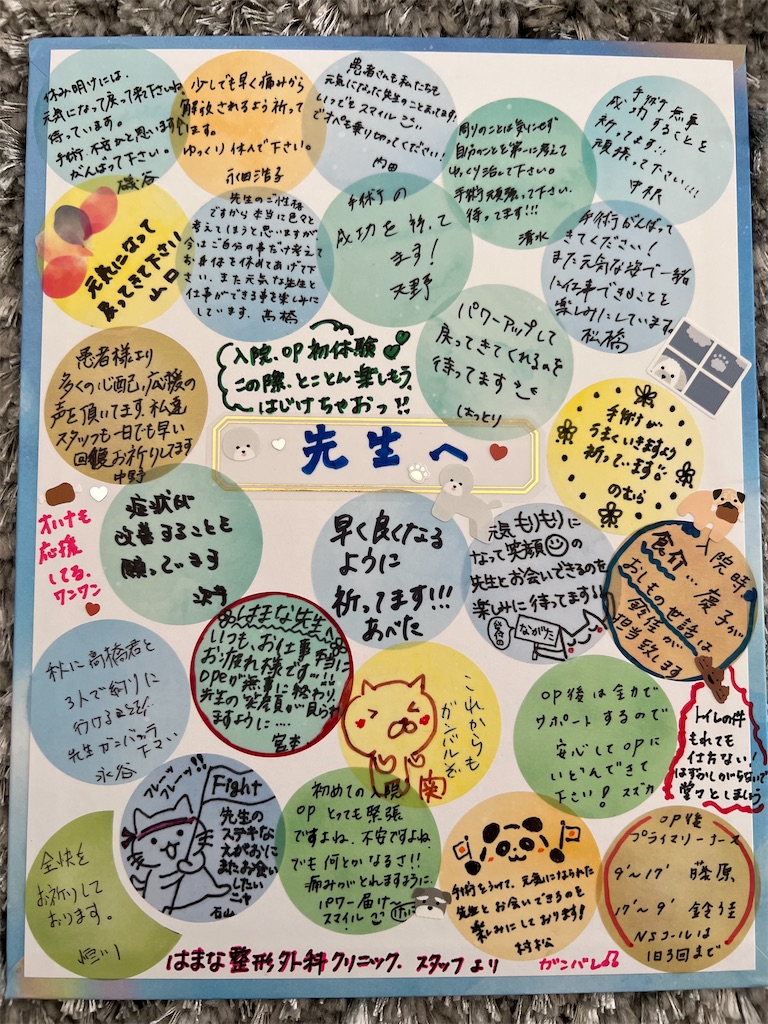 休み明けには、
元気になって戻って来て下さいね。
待っています。
手術、不安かと思いますが
がんばって下さい。
磯谷
少しでも早く痛みから
解放されるよう祈って
います。
ゆっくり休んで下さい。
永田浩子
患者さんも私たちも
元気になった先生のことまってます!
いつでもスマイル
でオペを乗り切ってください!
内田
周りのことは気にせず
自分のことを第一に考えて
ゆっくり治して下さい。
手術頑張って下さい。
待ってます!!!
清水
手術が無事
成功することを
祈ってます!!
頑張って下さい!!!
中根
元気になって
戻ってきて下さい
山口
先生のご性格
ですから本当に色々と
考えてしまうと思いますが
今はご自分の事だけ考えて
お身体を休めてあげて下
さい。また元気な先生と
仕事ができる事を楽しみに
しています。高橋
手術の
成功を祈って
ます!
天野
手術がんばって
きてください!
また元気な姿で一緒
に仕事できることを
楽しみにしています。
松橋
患者様より
多くの心配、応援の
声を頂いてます。私達
スタッフも一日でも早い
回復お祈りしてます
中野
入院、OP初体験
この際、とことん楽しもう。
はじけちゃおっ!!
パワーアップして
戻ってきてくれるのを
待ってます
はっとり
手術が
うまくいきますよう
祈っています
のむら
先生へ
オハナも
応援
してる。
ワンワン
症状が
改善することを
願っています
早く良くなる
ように
祈ってます!!!
あべた
元気もりもりに
なって笑顔の
先生とお会いできるのを
楽しみに待ってます!!
ながた
入院時
食介…慶子が
おしもの世話は
担当致します
秋に高橋君と
3人で釣りに
行けるよう
先生ガンバッテ
下さい
永谷
はまな先生へ
いつも、お仕事本当に
お疲れ様です…!!
OPEが無事に終わり、
先生の笑顔が見られ
ますように…
宮本
これからも
ガンバルぞ
OP後は全力で
サポートするので
安心してOPに
いどんできて
下さい! スズカ
トイレの件
もれても
仕方ない!
はずかしがらないで
堂々としましょう
全快を
お祈りして
おります。
恒川
フレーフレー!!
Fight
先生の
ステキな
えがおに
またお会い
したい
ニャ
石山
初めての入院
OPとっても緊張
ですよね。不安ですよね
でも何とかなるさ!!
痛みがとれますように。
パワー届け~
スマイル
手術をうけて、元気になられた
先生とお会いできるのを
楽しみにしております!
村松
OP後
プライマリーナース
9'~17' 藤原
17'~9' 鈴佳
NSコールは
1日3回まで
はまな整形外科クリニック. スタッフより
ガンバレ♫